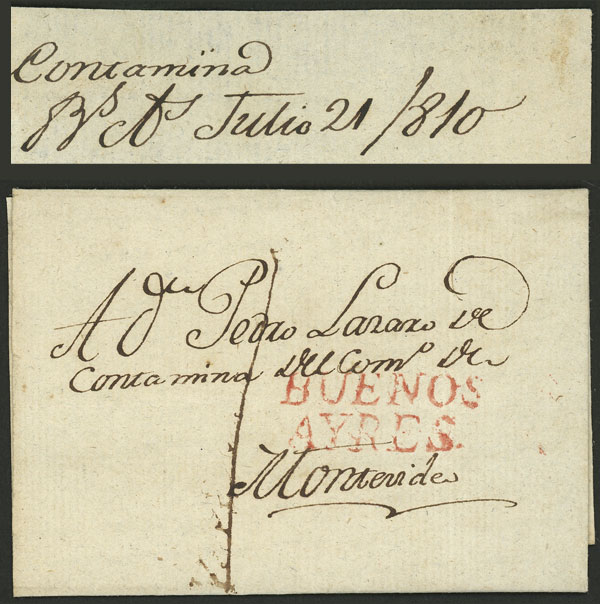 Contamina
Bs As Julio 21/810
A Dn Pedro Lazaro de
Contamina del Como de
BUENOS
AYRES.
Montevideo